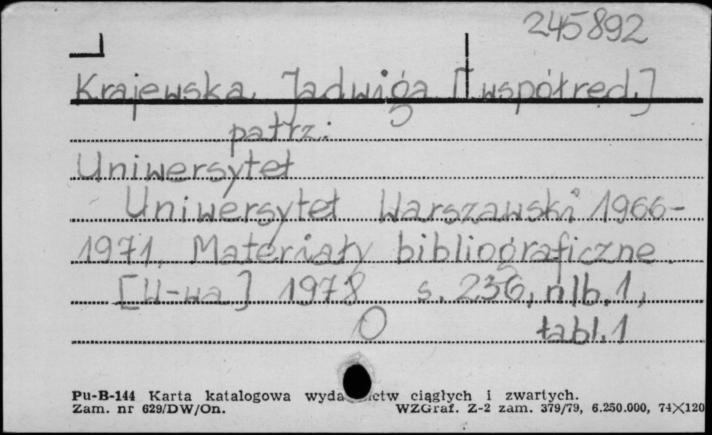 245892
Krajewska Jadwiga [współred.]
patrz:
Uniwersytet
Uniwersytet Warszawski 1966-
1971. Materiały bibliograficzne.
[W-wa] 1978 s. 236, nlb. 1,
tabl. 1
Pu-B-144 Karta katalogowa wyda ictw ciągłych i zwartych.
Zam. nr 629/DW/On. WZGraf. Z-2 zam. 379/79, 6.250.000, 74×120